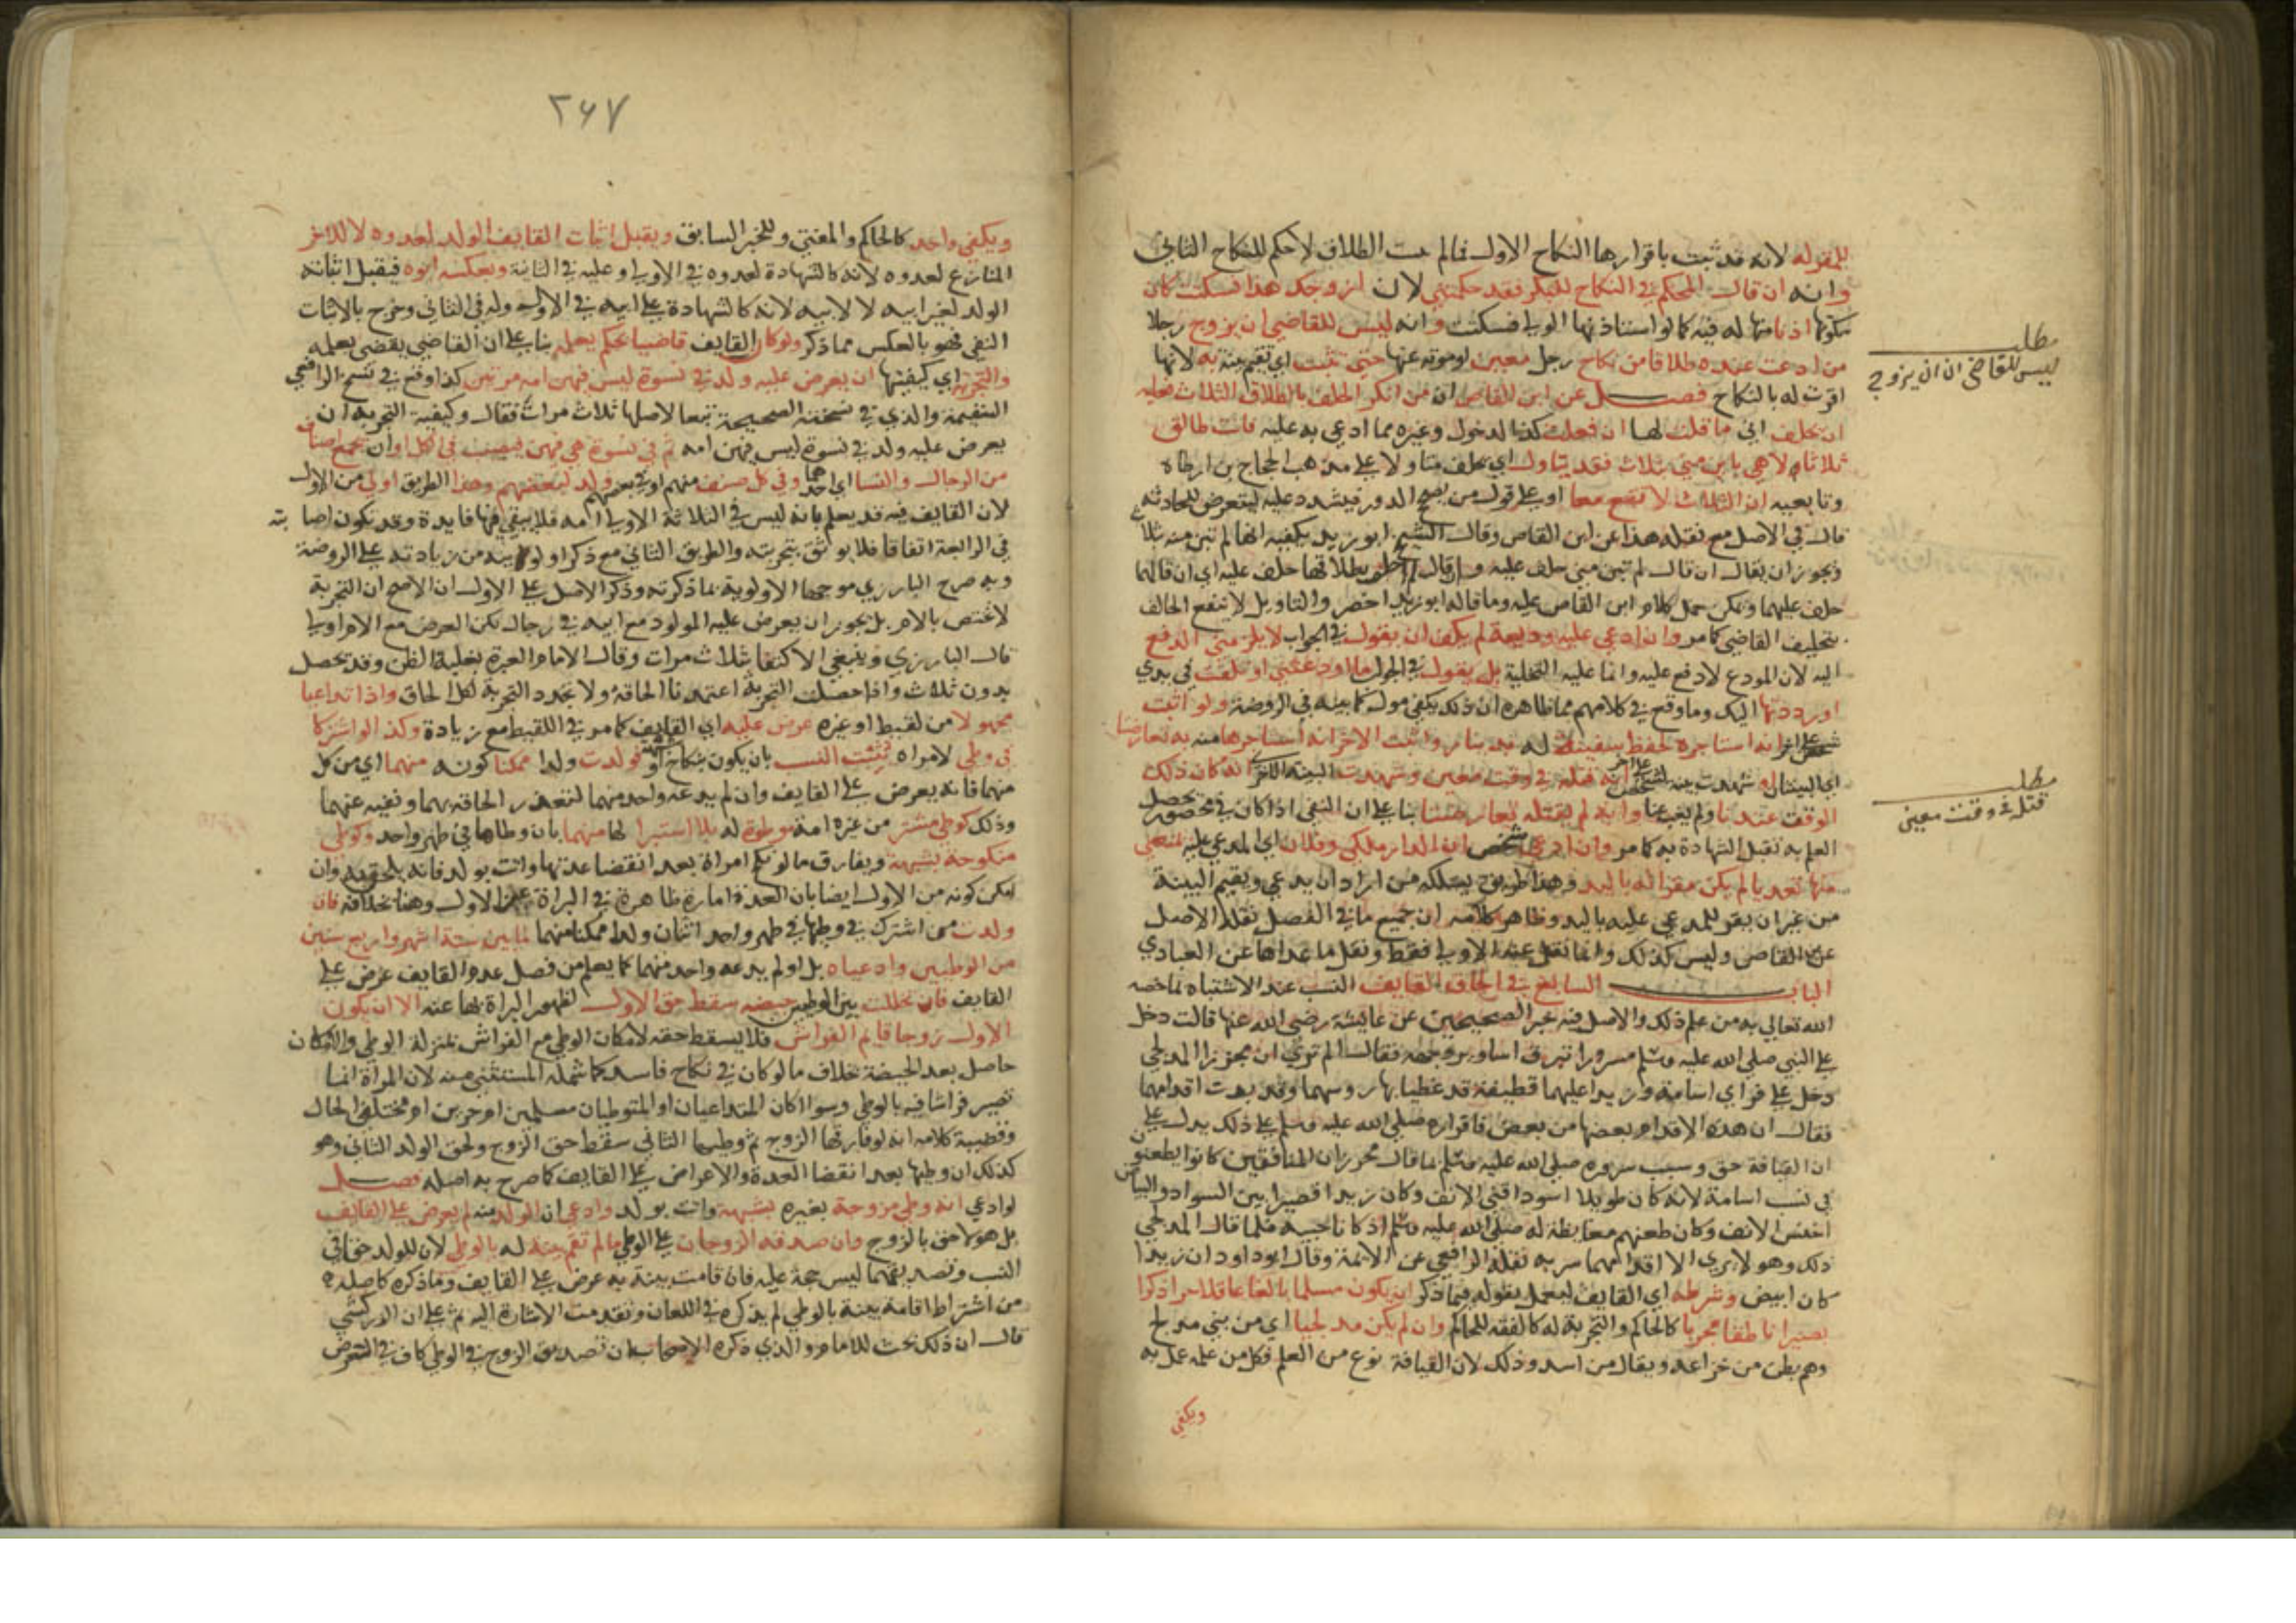 للمقر له لانه قد ثبت باقرارها النكاح الاول فما لم يثبت الطلاق لا حكم للنكاح الثاني
وانه ان قال المحكم في النكاح للبكر فقد حكمتني لان ازوجك هذا فسكتت كان
سكوتها اذنا منها له فيه كما لو استاذنها الولي فسكتت وانه ليس للقاضي ان يزوج رجلا
من ادعت عنده طلاقا من نكاح رجل معين او موته عنها حتى تثبت اي تقيم بينة به لانها
اقرت له بالنكاح فصل عن ابن القاص ان من انكر الحلف بالطلاق الثلاث فعليه
ان يحلف اني ما قلت لها ان فعلت كذا لدخول وغيره مما ادعي به عليه فانت طالق
ثلاثا ولا هي باين مني بثلاث فقد يتاول اي يحلف متاولا على مذهب الحجاج بن ارطاه
وتابعيه ان الثلاث لا تقع معا او على قول من يصحح الدور فيشدد عليه ليتعرض للحادثة
قال في الاصل مع نقله هذا عن ابن القاص وقال الشيخ ابو زيد يكفيه انها لم تبن منه بثلا
ويجوز ان يقال ان قال لم تبن مني حلف عليه وان قال لم احلف بطلاقها حلف عليه اي ان قالهما
حلف عليهما ويمكن حمل كلام ابن القاص عليه وما قاله ابو زيد اخصر والتاويل لا ينفع الحالف
بتحليف القاضي كما مر وان ادعي عليه وديعة لم يكف ان يقول في الجواب لا يلزمني الدفع
اليه لان المودع لا دفع عليه وانما عليه التخلية بل يقول في الجواب ما اودعتني او تلفت في يدي
او رددتها اليك وما وقع في كلامهم مما ظاهره ان ذلك يكفي مول كما بينه في الروضة ولو اثبت
شخص على اخر انه استاجره لحفظ سفينة له بدينار واثبت الاخر انه استاجرها منه به تعارضتا
اي البينتان او شهدت بينة لشخص على اخر انه قتله في وقت معين وشهدت البينة الاخرى انه كان ذلك
الوقت عندنا ولم يغب عنا وانه لم يقتله تعارضتا بنا على ان النفي اذا كان في محصور يحصل
العلم به تقبل الشهادة به كما مر وان ادعى شخص ان الدار ملكي وفلان اي المدعى عليه يمنعني
منها تعديا لم يكن مقرا له باليد وهذا طريق يسلكه من اراد ان يدعي ويقيم البينة
من غير ان يقر للمدعى عليه باليد وظاهر كلامه ان جميع ما في الفصل نقله الاصل
عن القاص وليس كذلك وانما نقل عنه الاولى فقط ونقل ما عداها عن العبادي
الباب السابع في الحاق القايف النسب عند الاشتباه بما خصه
الله تعالى به من علم ذلك والاصل فيه خبر الصحيحين عن عايشة رضي الله عنها قالت دخل
علي النبي صلى الله عليه وسلم مسرورا تبرق اسارير وجهه فقال الم تري ان مجززا المدلجي
دخل علي فراى اسامة وزيدا عليهما قطيفة قد غطيا بها روسهما وقد بدت اقدامهما
فقال ان هذه الاقدام بعضها من بعض فاقراره صلى الله عليه وسلم على ذلك يدل على
ان القيافة حق وسبب سروره صلى الله عليه وسلم بما قال مجزز ان المنافقين كانوا يطعنون
في نسب اسامة لانه كان طويلا اسود اقنى الانف وكان زيد قصيرا بين السواد والبياض
اخنس الانف وكان طعنهم مغايظة له صلى الله عليه وسلم اذ كانا حبيبه فلما قال المدلجي
ذلك وهو لا يرى الا اقدامهما سر به نقله الرافعي عن الائمة وقال ابو داود ان زيدا
كان ابيض وشرطه اي القايف ليعمل بقوله فيما ذكر ان يكون مسلما بالغا عاقلا حرا ذكرا
بصيرا ناطقا مجربا كالحاكم والتجربة له كالفقه للحاكم وان لم يكن مدلجيا اي من بني مدلج
وهم بطن من خزاعة ويقال من اسد وذلك لان القيافة نوع من العلم فكل من علمه عمل به
ويكفي
مطلب
ليس للقاضي ان ان يزوج
مطلب
قتل في وقت معين
٢٦٧
ويكفي واحد كالحاكم والمفتي وللخبر السابق ويقبل اثبات القايف الولد لعدوه لا للاخر
المنازع لعدوه لانه كالشهادة لعدوه في الاولى وعليه في الثانية وبعكسه ابوه فيقبل اثباته
الولد لغير ابيه لا لابيه لانه كالشهادة على ابيه في الاول وله في الثاني وخرج بالاثبات
النفي فهو بالعكس مما ذكر ولو كان القايف قاضيا حكم بعلمه بنا على ان القاضي يقضي بعلمه
والتجربة اي كيفيتها ان يعرض عليه ولد في نسوة ليس فيهن امه مرتين كذا وقع في نسخ الرافعي
السقيمة والذي في نسخه الصحيحة تبعا لاصلها ثلاث مرات فقال وكيفية التجربة ان
يعرض عليه ولد في نسوة ليس فيهن امه ثم في نسوة هي فيهن فيصيب في الكل او ان تجمع اصناف
من الرجال والنسا اي احدهما وفي كل صنف منهم او في بعضهم ولد لبعضهم وهذا الطريق اولى من الاول
لان القايف فيه قد يعلم بانه ليس في الثلاثة الاولى امه فلا يبقى فيها فايدة وقد تكون اصابته
في الرابعة اتفاقا فلا يوثق بتجربته والطريق الثاني مع ذكر اولويته من زيادته على الروضة
وبه صرح البارزي موجها الاولوية بما ذكرته وذكر الاصل على الاول ان الاصح ان التجربة
لا تختص بالام بل يجوز ان يعرض عليه المولود مع ابيه في رجال لكن العرض مع الام اولى
قال البارزي وينبغي الاكتفا بثلاث مرات وقال الامام العبرة بغلبة الظن وقد تحصل
بدون ثلاث واذا حصلت التجربة اعتمدنا الحاقه ولا تجدد التجربة لكل الحاق واذا تداعيا
مجهولا من لقيط او غيره عرض عليه اي القايف كما مر في اللقيط مع زيادة وكذا لو اشتركا
في وطي لامراه يثبت النسب بان يكون بنكاح او شبهة فولدت ولدا ممكنا كونه منهما اي من كل
منهما فانه يعرض على القايف وان لم يدعه واحد منهما لتعذر الحاقه بهما ونفيه عنهما
وذلك كوطي مشتر من غيره امة موطوة له بلا استبرا لها منهما بان وطاها في طهر واحد وكوطي
منكوحة بشبهة ويفارق ما لو نكح امراة بعد انقضا عدتها واتت بولد فانه يلحقه وان
امكن كونه من الاول ايضا بان العدة امارة ظاهرة في البراة عن الاول وهنا بخلافه فان
ولدت من اشترك في وطيها في طهر واحد اثنان ولدا ممكنا منهما لما بين ستة اشهر واربع سنين
من الوطيين وادعياه بل او لم يدعه واحد منهما كما يعلم من فصل عدم القايف عرض على
القايف فان تخللت بين الوطيين حيضة سقط حق الاول لظهور البراة بها عنه الا ان يكون
الاول زوجا قايم الفراش فلا يسقط حقه لامكان الوطي مع الفراش بمنزلة الوطي والامكان
حاصل بعد الحيضة بخلاف ما لو كان في نكاح فاسد كما شمله المستثنى منه لان المراة انما
تصير فراشا فيه بالوطي وسوا اكان المتداعيان او المتوطيان مسلمين ام حرين ام مختلفي الحال
وقضية كلامه انه لو فارقها الزوج ثم وطيها الثاني سقط حق الزوج ولحق الولد الثاني وهو
كذلك ان وطيها بعد انقضا العدة والا عرض على القايف كما صرح به اصله فصل
لو ادعي انه وطي مزوجة بغيره بشبهة واتت بولد وادعى ان الولد منه لم يعرض على القايف
بل هو لاحق بالزوج وان صدقه الزوجان على الوطي ما لم تقم بينة له بالوطي لان للولد حقا في
النسب وتصديقهما ليس حجة عليه فان قامت بينة به عرض على القايف وما ذكره كاصله
من اشتراط اقامة بينة بالوطي لم يذكره في اللعان وتقدمت الاشارة اليه ثم على ان الزركشي
قال ان ذلك بحث للامام والذي ذكره الاصحاب ان تصديق الزوج في الوطي كاف في العرض